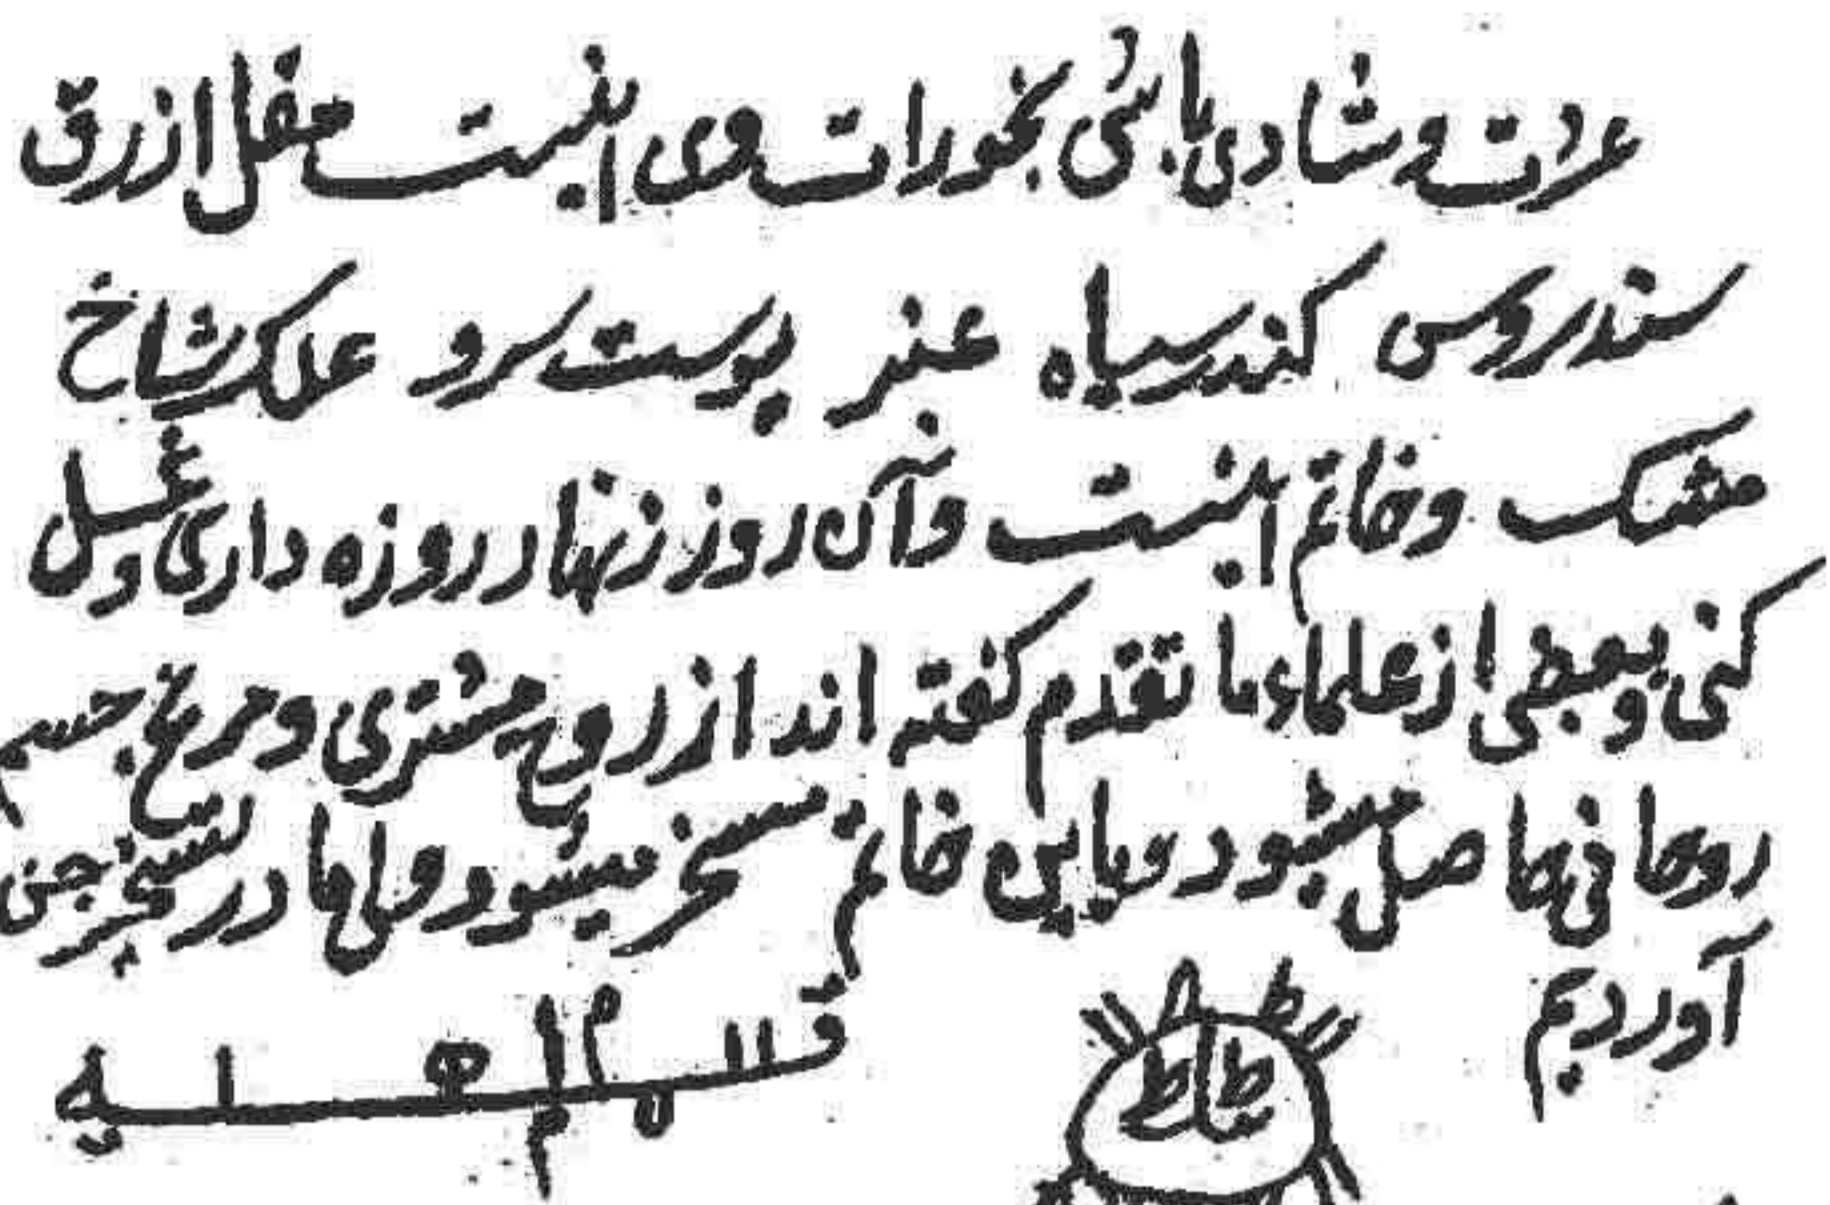 عزت و شادی باشی بخورات وی اینست مقل ازرق
سندروس کندر سیاه عنبر پوست سرو علک شاخ
مشک و خاتم اینست و آن روز زنهار روزه داری و غسل
کنی و بعضی از علماء ما تقدم گفته اند از روح مشتری و مریخ جسم
روحانی حاصل میشود و باین خاتم مسخر میشود و ما در تسخیر جن
آوردیم
طاط